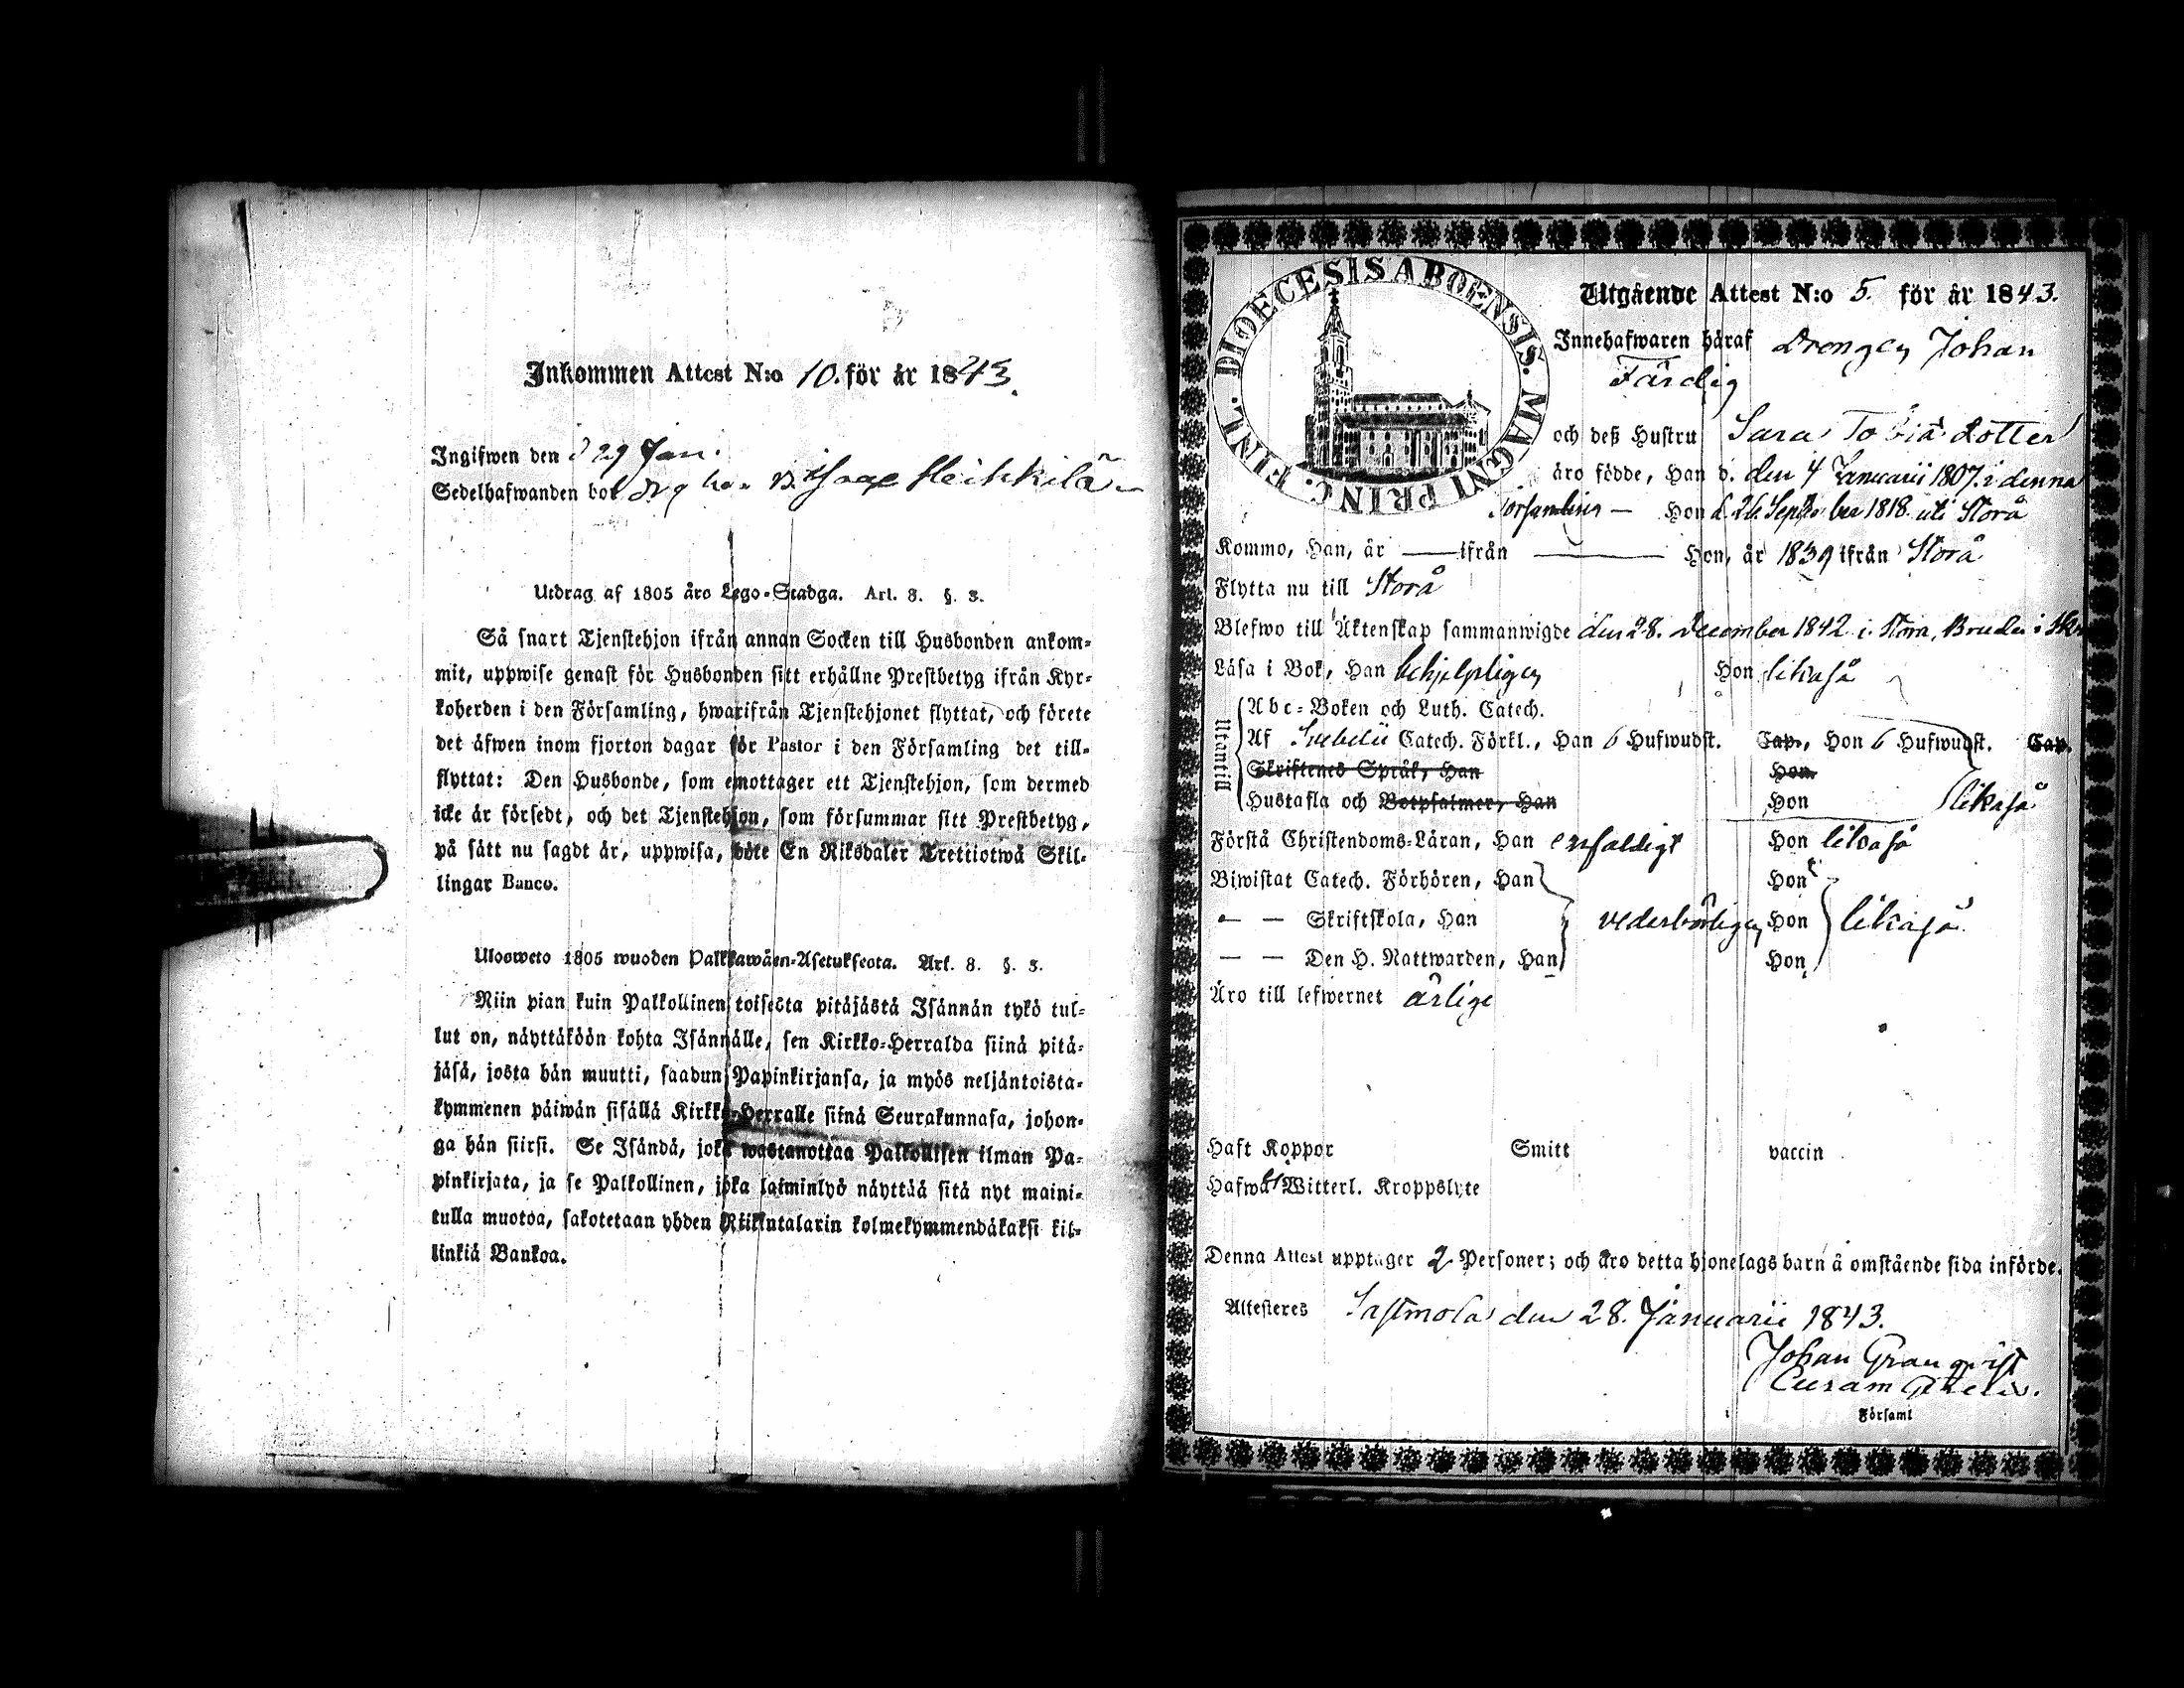 Inkommen Attest N:o 10. för år 1843.
Ingifwen den d 29 Jan.
Sedelhafwanden bor Isaac Heikkilä
Utdrag af 1805 åro Lego-Stadga. Art. 8. §. 3.
Så snart Tjenstehjon ifrån annan Socken till Husbonden ankom-
mit, uppwise genast för Husbonden sitt erhållne Prestbetyg ifrån Kyr-
koherden i den Församling, hwarifrån Tjenstehjonet flyttat, och förete
det äfwen inom fjorton dagar för Pastor i den Församling det till-
flyttat: Den Husbonde, som emottager ett Tjenstehjon, som dermed
icke är försedt, och det Tjenstehjon, som försummar sitt Prestbetyg,
på sätt nu sagdt är, uppwisa, böte En Riksdaler Trettiotwå Skil-
lingar Banco.
Uloosweto 1805 wuoden Palkkawäen-Asetuksesta. Art. 8. §. 3.
Niin pian kuin Palkollinen toisesta pitäjästä Isännän tykö tul-
lut on, näyttäköön kohta Isännälle, sen Kirkko-Herralda siinä pitä-
jäsä, josta hän muutti, saadun Papinkirjansa, ja myös neljäntoista-
kymmenen päiwän sisällä Kirkko-Herralle siinä Seurakunnasa, johon-
ga hän siirsi. Se Isändä, joka wastanottaa Palkollisen ilman Pa-
pinkirjata, ja se Palkollinen, joka laiminlyö näyttää sitä nyt maini-
tulla muotoa, sakotetaan yhden Riikintalarin kolmekymmendäkaksi kil-
linkiä Bankoa.
DIOECESIS ABOENSIS. MAGNI PRINC. FINL.
Utgående Attest N:o 5. för år 1843.
Innehafwaren häraf Drengen Johan
Färdig
och deß Hustru Sara Tobiädotter
äro födde, Han d. den 4 Januarii 1807. i denna
Församling — Hon d. 26 September 1818. uti Storå
Kommo, Han, år — ifrån — Hon, år 1839 ifrån Storå
Flytta nu till Storå
Blefwo till Äktenskap sammanwigde den 28. December 1842. i Storå, Bruden i
Läsa i Bok, Han behjelpligen Hon likaså
Utantill
Abc-Boken och Luth. Catech.
Af Svebelii Catech. Förkl., Han 6 Hufwudst. Cap., Hon 6 Hufwudst. Cap.
Skriftenes Språk, Han Hon
Hustafla och Botpsalmer, Han Hon likaså
Förstå Christendoms-Läran, Han enfaldigt Hon likaså
Biwistat Catech. Förhören, Han Hon
— — Skriftskola, Han vederbörligen Hon likaså
— — Den H. Nattwarden, Han Hon
Äro till lefwernet ärlige
Haft Koppor Smitt vaccin
Hafwa Witterl. Kroppslyte
Denna Attest upptager 2 Personer; och äro detta hjonelags barn å omstående sida införde.
Attesteres Sastmola den 28. Januarii 1843.
Johan Granqvist
Församl